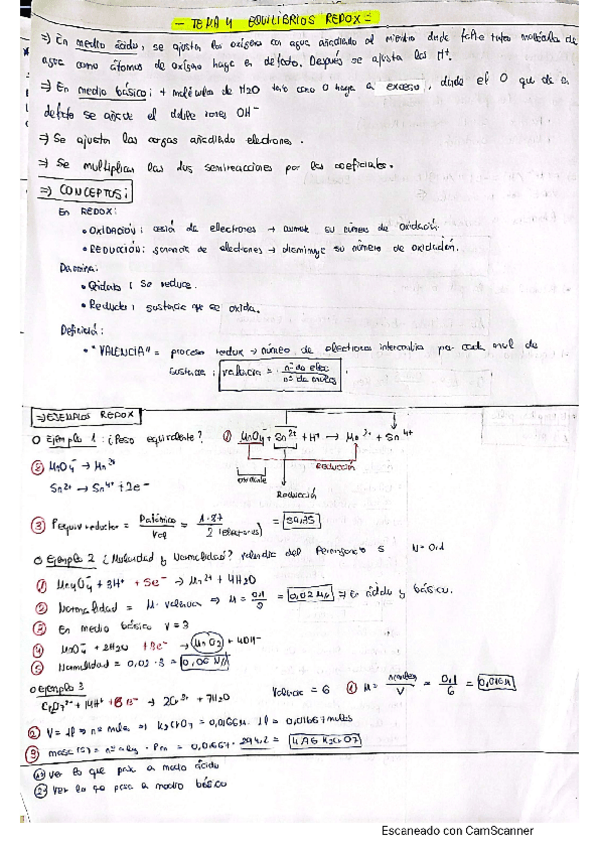 - TEMA 4 EQUILIBRIOS REDOX =
=) En medio ácido, se ajusta los oxígeno con agua añadiendo al miembro donde falte tantas moléculas de
agua como átomos de oxígeno haya en defecto. Después se ajusta los H+.
=) En medio básico: + moléculas de H2O tanto como O haya en exceso, donde el O que de en
defecto se añade el doble iones OH-
=) Se ajustan las cargas añadiendo electrones.
=) Se multiplican las dos semireacciones por los coeficientes.
=) CONCEPTOS:
En REDOX:
• OXIDACIÓN: cesión de electrones → aumenta su número de oxidación.
• REDUCCIÓN: ganancia de electrones → disminuye su número de oxidación.
• Oxidante: Se reduce.
• Reductor: sustancia que se oxida.
Definición:
• "VALENCIA" = proceso redox → número de electrones intercambia por cada mol de
sustancia: valencia = nº de elec / nº de moles
=) EJEMPLOS REDOX
O Ejemplo 1: ¿Peso equivalente? ① MnO4- + Sn2+ + H+ → Mn2+ + Sn4+
② MnO4- → Mn2+
Sn2+ → Sn4+ + 2e-
oxidante
Reducción
Reducción
③ Pequiv reductor = Patómico / val = / 2 (electrones) = 59,35
O Ejemplo 2 ¿Molaridad y Normalidad? valencia del Permanganato 5 N=0,1
① MnO4- + 8H+ + 5e- → Mn2+ + 4H2O
② Normalidad = M · valencia => M = = 0,02 M => En ácido y básico.
③ En medio básico v = 3
④ MnO4- + 2H2O + 3e- → MnO2 + 4OH-
⑤ Normalidad = 0,02 · 3 = 0,06 N
O Ejemplo 3
Cr2O7 2- + 14H+ + 6e- → 2Cr3+ + 7H2O Valencia = 6 ① M = = 0,1 / 6 = 0,016M
② V = 1l => nº moles => K2Cr2O7 = 0,0166M · 1l = 0,01667 moles
③ masa (g) = nº moles · Pm = 0,01667 · 294,2 = K2Cr2O7
① Ver lo que pasa a medio ácido
② Ver lo que pasa a medio básico
Escaneado con CamScanner